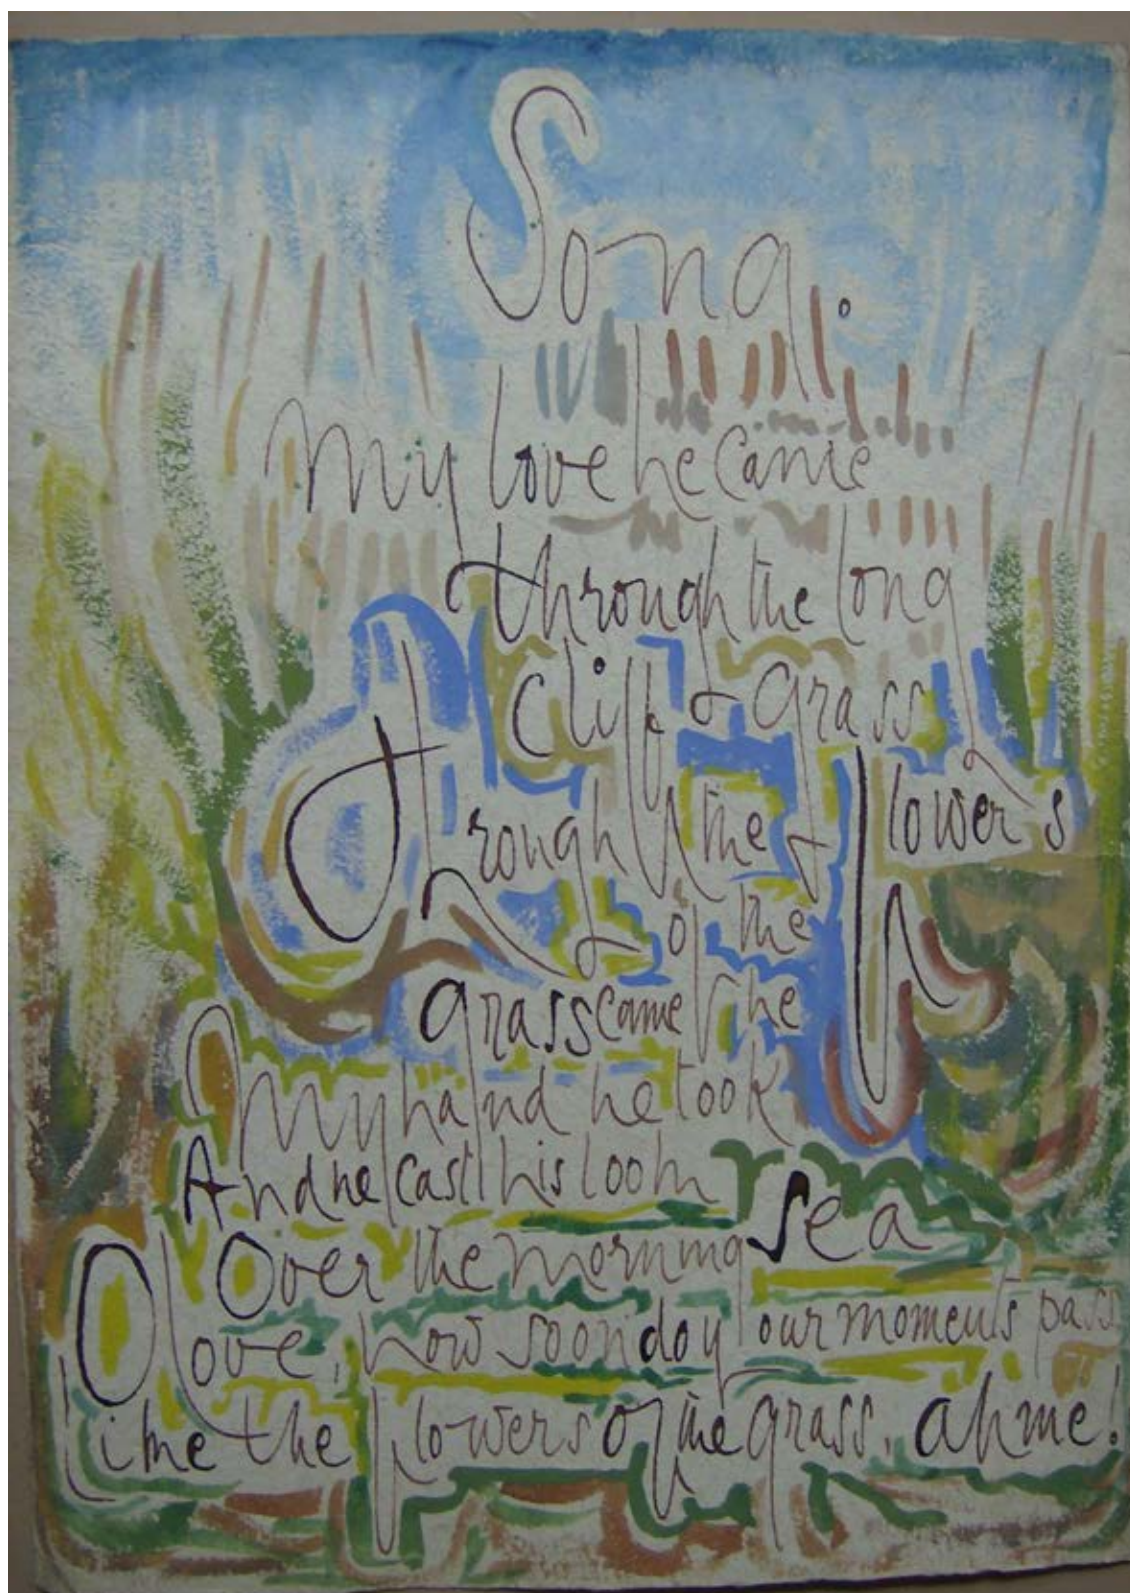 Song.
My love he came
through the long
cliff grass
through the flowers
of the
grass came he
My hand he took
And he cast his look
Over the morning sea
O love, how soon do our moments pass
like the flowers of the grass, ah me!